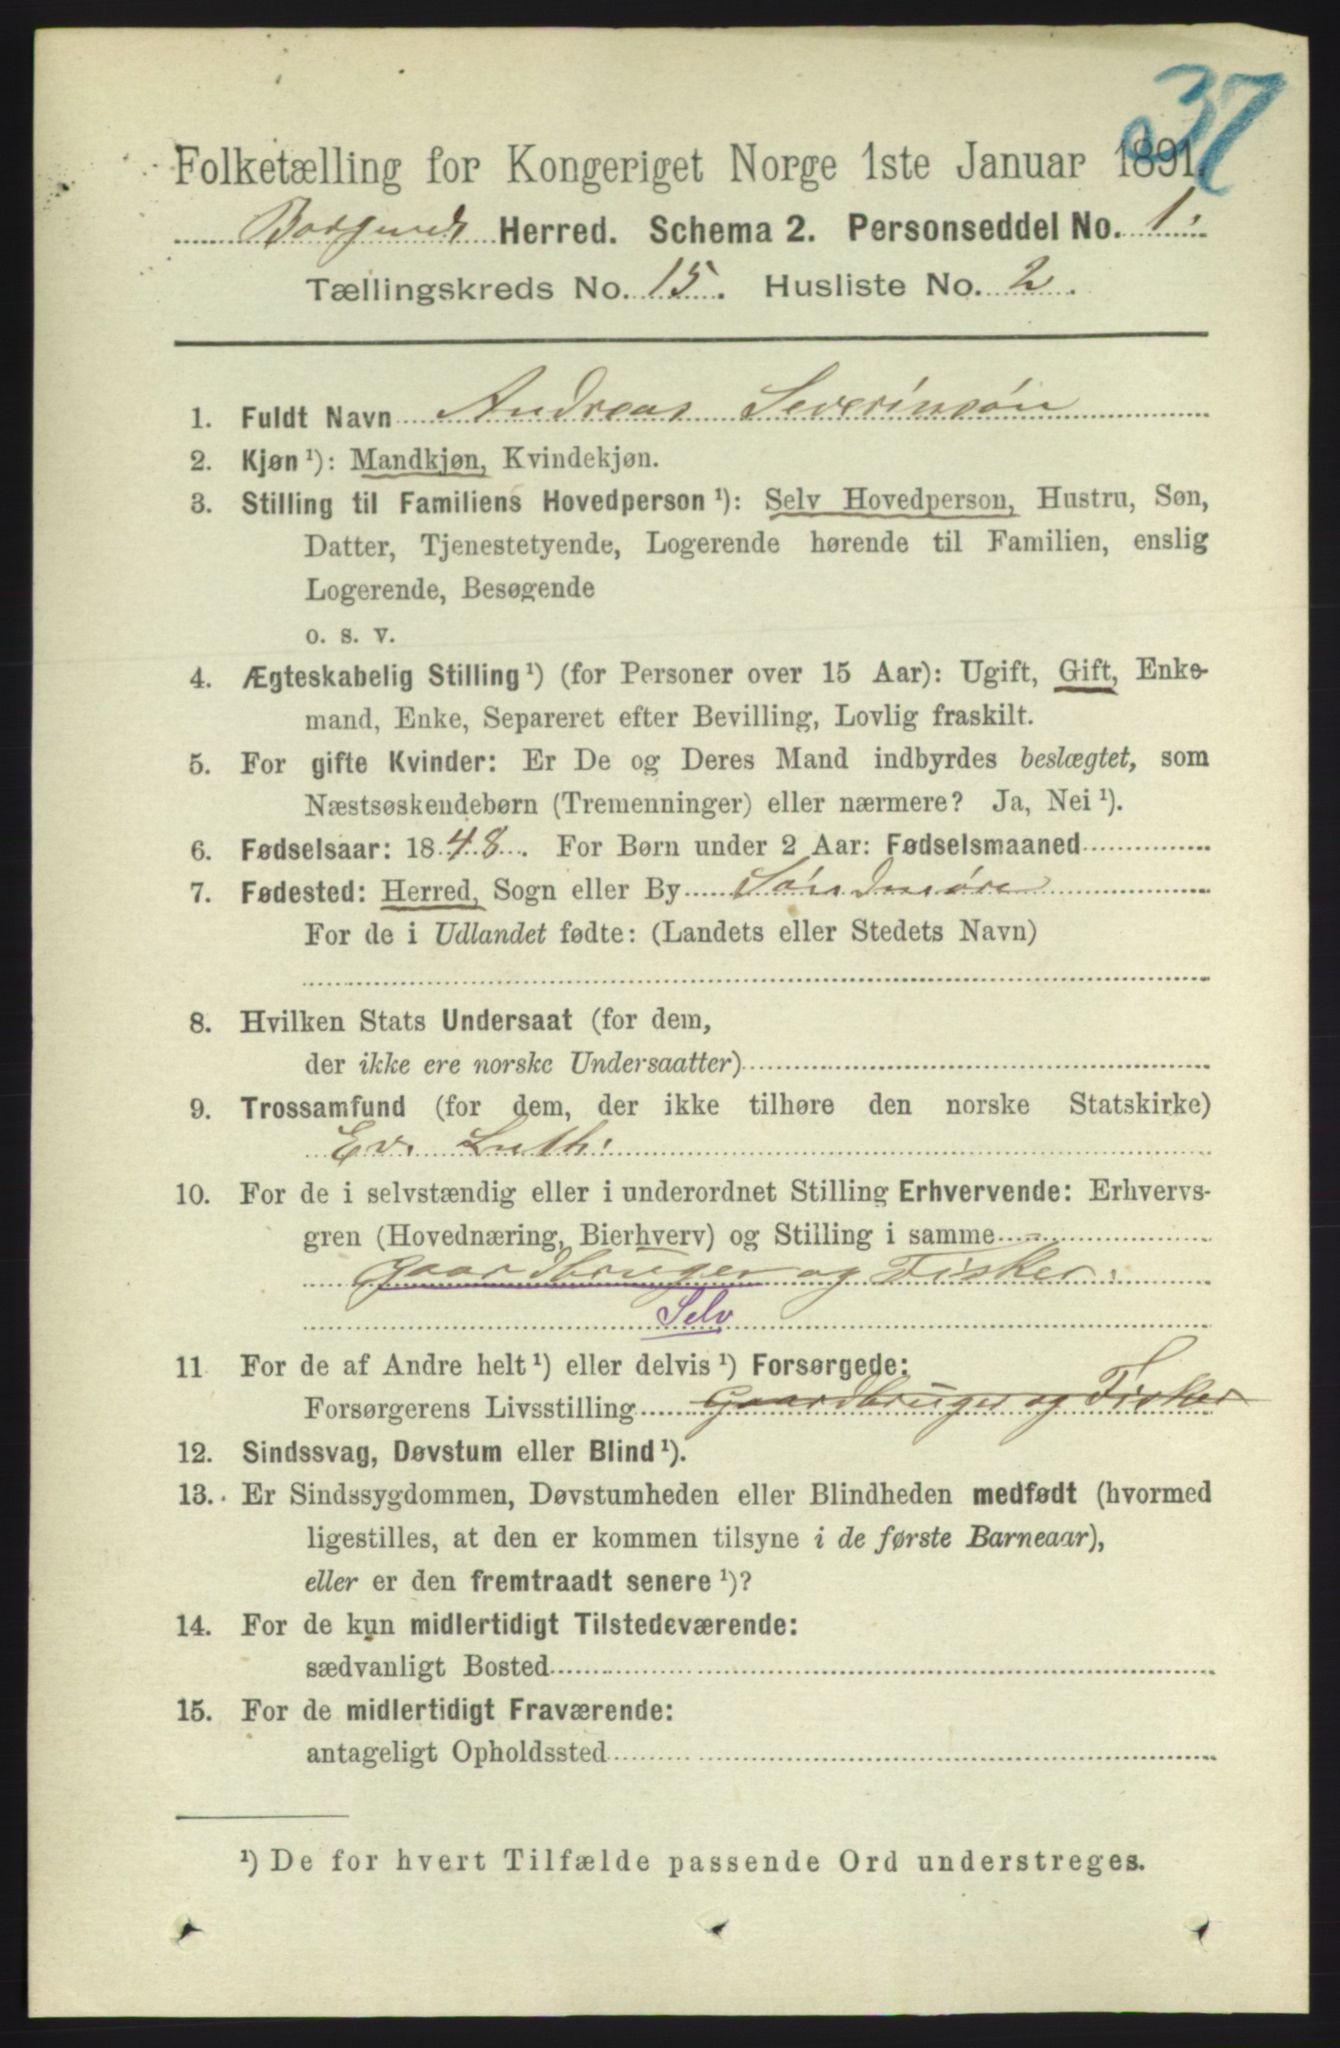 37
Folketælling for Kongeriget Norge 1ste Januar 1891.
Borgunds Herred. Schema 2. Personseddel No. 1.
Tællingskreds No. 15. Husliste No. 2.
1. Fuldt Navn Andreas Severinsón
2. Kjøn ¹): Mandkjøn, Kvindekjøn.
3. Stilling til Familiens Hovedperson ¹): Selv Hovedperson, Hustru, Søn,
Datter, Tjenestetyende, Logerende hørende til Familien, enslig
Logerende, Besøgende
o. s. v.
4. Ægteskabelig Stilling ¹) (for Personer over 15 Aar): Ugift, Gift, Enke-
mand, Enke, Separeret efter Bevilling, Lovlig fraskilt.
5. For gifte Kvinder: Er De og Deres Mand indbyrdes beslægtet, som
Næstsøskendebørn (Tremenninger) eller nærmere? Ja, Nei ¹).
6. Fødselsaar: 1848. For Børn under 2 Aar: Fødselsmaaned
7. Fødested: Herred, Sogn eller By Sóndmóre
For de i Udlandet fødte: (Landets eller Stedets Navn)
8. Hvilken Stats Undersaat (for dem,
der ikke ere norske Undersaatter)
9. Trossamfund (for dem, der ikke tilhøre den norske Statskirke)
Ev. Luth:
10. For de i selvstændig eller i underordnet Stilling Erhvervende: Erhvervs-
gren (Hovednæring, Bierhverv) og Stilling i samme
Gaardbruger og Fisker.
Selv
11 For de af Andre helt ¹) eller delvis ¹) Forsørgede:
Forsørgerens Livsstilling Gaardbruger og Fisker
12. Sindssvag, Døvstum eller Blind ¹).
13. Er Sindssygdommen, Døvstumheden eller Blindheden medfødt (hvormed
ligestilles, at den er kommen tilsyne i de første Barneaar),
eller er den fremtraadt senere ¹)?
14. For de kun midlertidigt Tilstedeværende:
sædvanligt Bosted
15. For de midlertidigt Fraværende:
antageligt Opholdssted
¹) De for hvert Tilfælde passende Ord understreges.